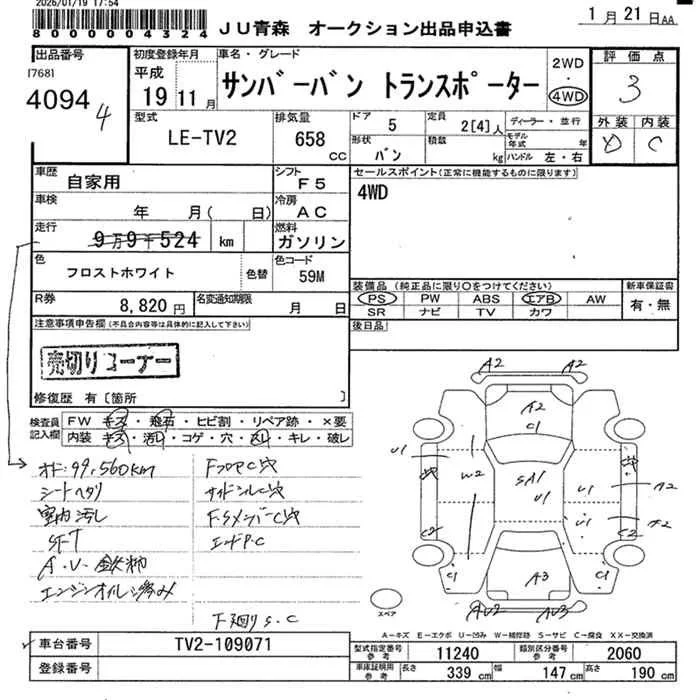 2026/01/19 17:54
8 0 0 0 0 0 4 3 2 4
JU青森 オークション出品申込書
1月21日AA
出品番号
17681
4094
4
初度登録年月
平成
19 11月
車名・グレード
サンバーバン トランスポーター
2WD
・
4WD
評価点
3
外装 内装
D C
型式
LE-TV2
排気量
658 cc
ドア
5
定員
2[4]人
ディーラー・並行
モデル年式 年
形状
バン
積載
kg
ハンドル 左・右
車歴
自家用
シフト
F5
車検
年 月( 日)
冷房
AC
走行
9万9千524 km
燃料
ガソリン
色
フロストホワイト
色替
色コード
59M
R券
8,820円
名変通知期限
月 日
セールスポイント(正常に機能するものに限ります)
4WD
装備品 (純正品に限り○をつけてください)
PS PW ABS エアB AW
SR ナビ TV カワ
新車保証書
有・無
後日品
注意事項申告欄(不具合内容等は具体的に記入して下さい)
売切りコーナー
修復歴 有〔箇所 〕
検査員記入欄
FW キズ・飛石・ヒビ割・リペア跡・×要
内装 キズ・汚れ・コゲ・穴・きり・キレ・破レ
オド:99,560km
シートヘタリ
室内汚し
SFT
A・U・鉄柄
エンジンオイル滲み
FフロアC穴
サイドシルC穴
F.SメンバーC穴
エンドP.C
F廻りS.C
A2
A2
A2
C1
U1
W2
SA1
U1
U1
A2
U1
A2
C2
C2
C1
C1
A3
AU2
AU3
スペア
A-キズ E-エクボ U-凹み W-補修跡 S-サビ C-腐食 XX-交換済
車台番号
TV2-109071
登録番号
型式指定番号 参考
11240
類別区分番号 参考
2060
車庫証明用 参考
長さ 339 cm 幅 147 cm 高さ 190 cm